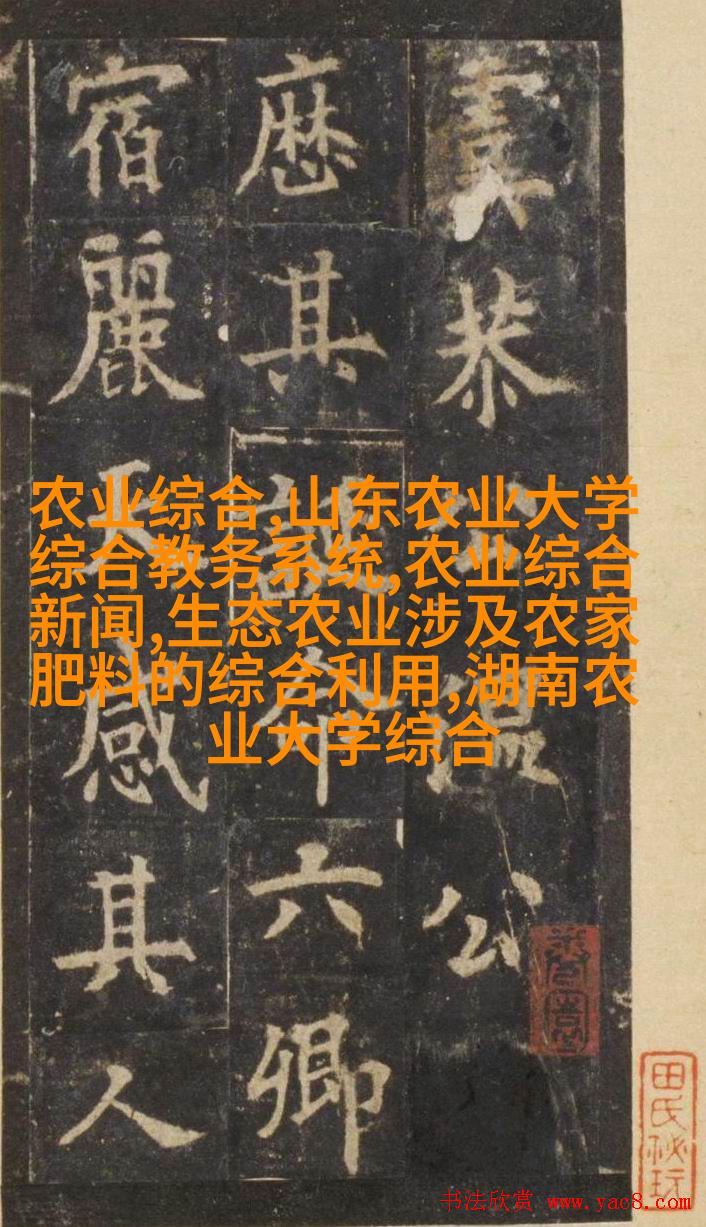 恭温公
厯其六卿
宿麗天感其人
农业综合,山东农业大学
综合教务系统,农业综合
新闻,生态农业涉及农家
肥料的综合利用,湖南农
业大学综合
田氏秘玩
书法欣赏 www.yac8.com